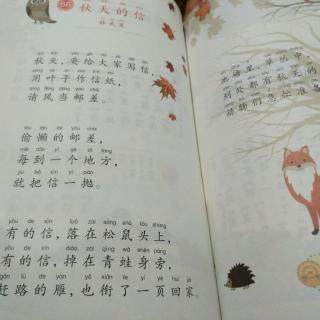 秋天的信
林武宪
秋天，要给大家写信，
用叶子作信纸，
请风当邮差。
tōu lǎn de yóu chāi
偷懒的邮差，
měi dào yí gè dì fāng
每到一个地方，
jiù bǎ xìn yì pāo
就把信一抛。
yǒu de xìn luò zài sōng shǔ tóu shàng
有的信，落在松鼠头上，
yǒu de xìn diào zài qīng wā shēn páng
有的信，掉在青蛙身旁，
gǎn lù de yàn yě xián le yí yè huí jiā
赶路的雁，也衔了一页回家。
里，草丛中，
到处都有秋天的
动物们急忙准备